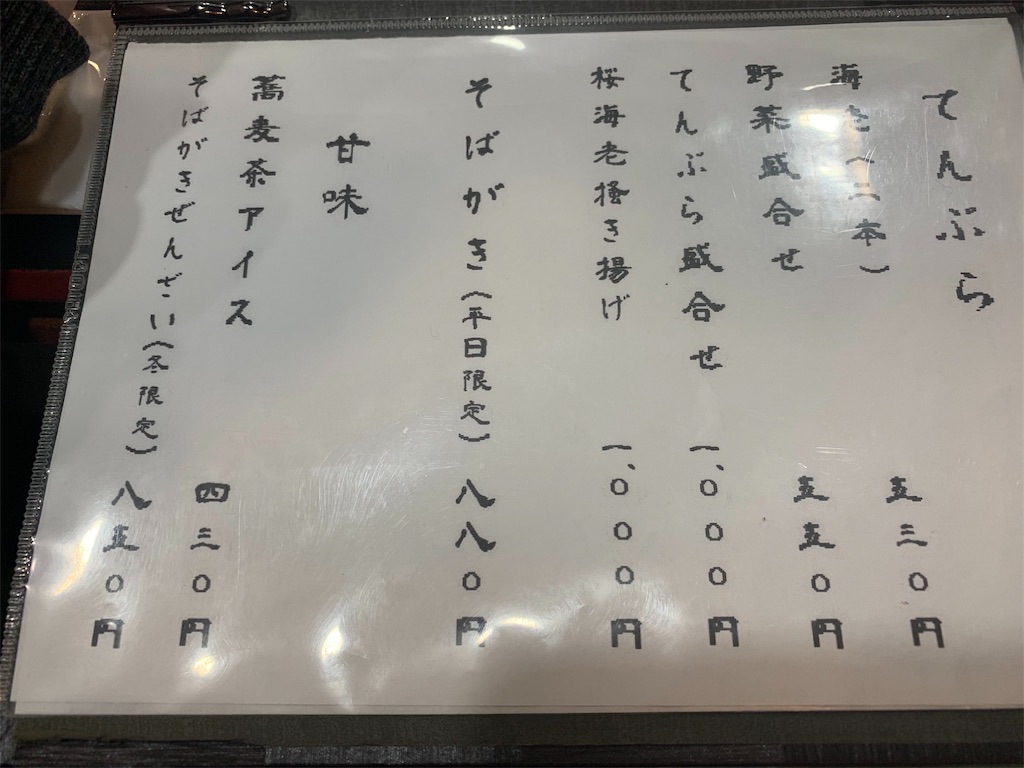 てんぷら
海老(二本) 五三〇円
野菜盛合せ 五五〇円
てんぷら盛合せ 一、〇〇〇円
桜海老搔き揚げ 一、〇〇〇円
そばがき(平日限定) 八八〇円
甘味
蕎麦茶アイス 四三〇円
そばがきぜんざい(冬限定) 八五〇円